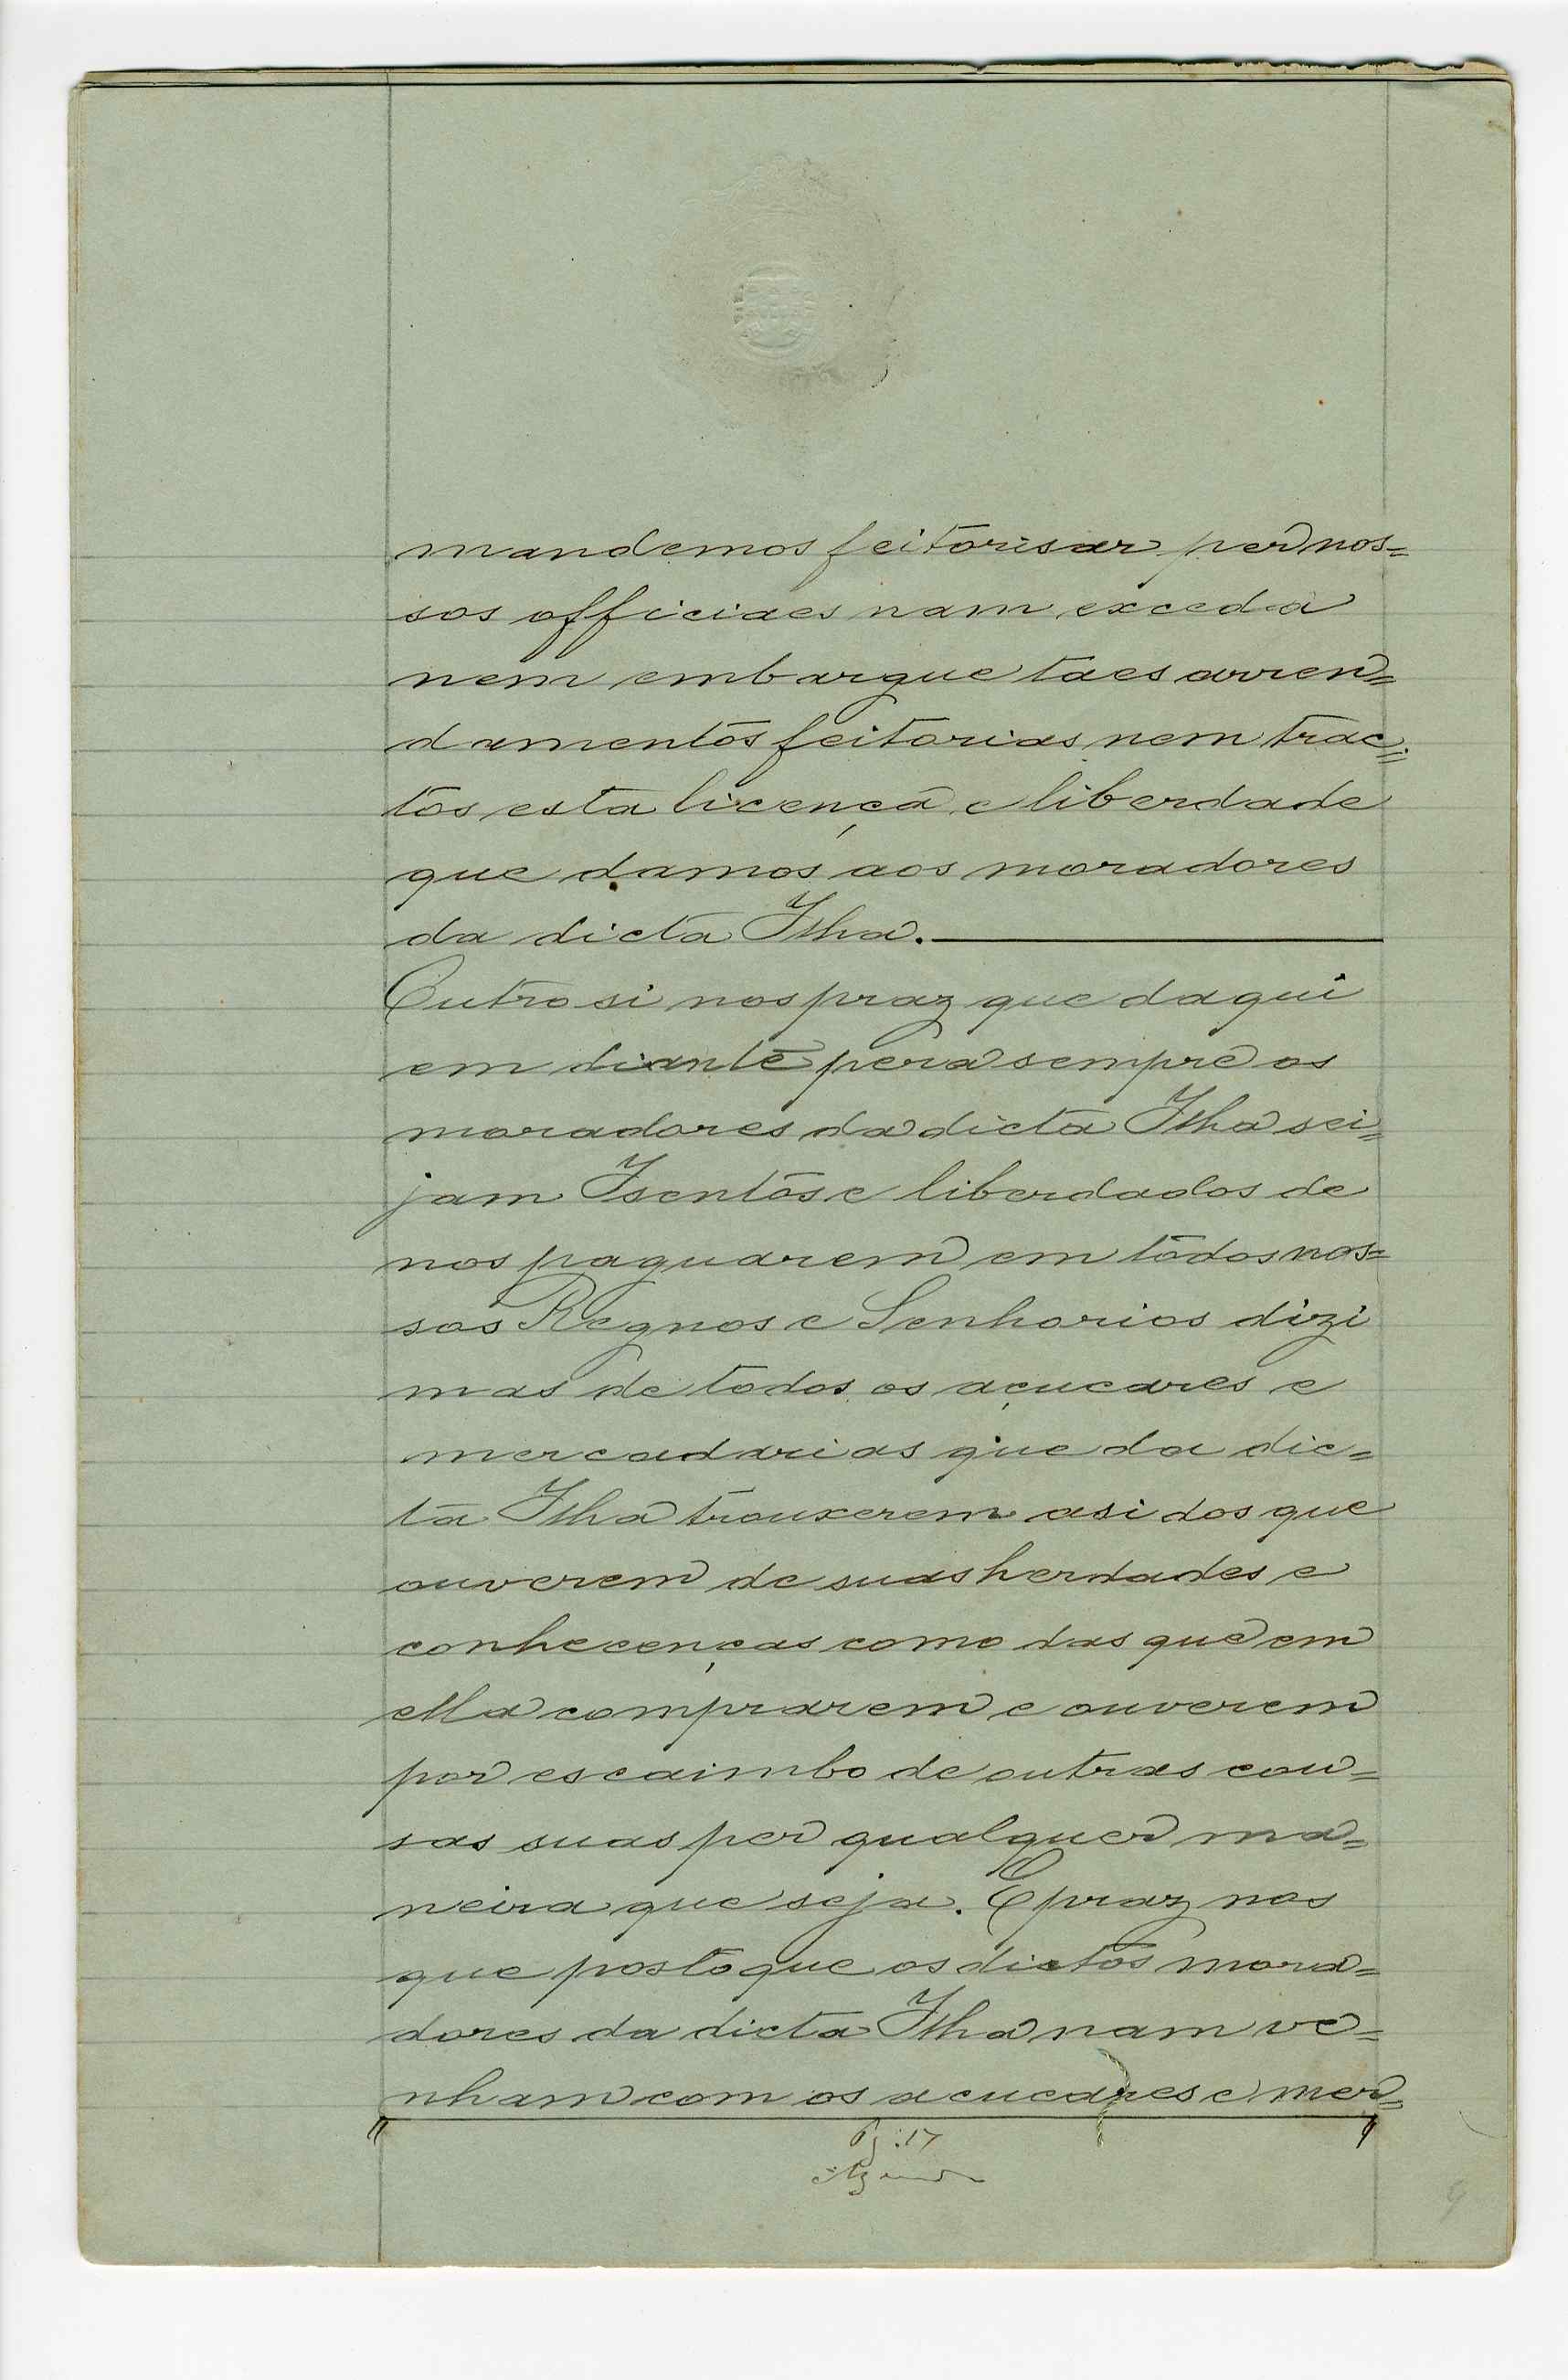 mandemos feitorisar per nos=
sos officiaes nam exceda
nem embargue taes arren=
damentos feitorias nem trac=
tos esta licença e liberdade
que damos aos moradores
da dicta Ilha.
Outro si nos praz que daqui
em diante pera sempre os
moradores da dicta Ilha sei=
jam Isentos e liberdados de
nos paguarem em todos nos=
sos Regnos e Senhorios dizi
mas de todos os açucares e
mercadarias que da dic=
ta Ilha trouxerem asi dos que
ouverem de suas herdades e
conhecenças como das que em
ella comprarem e ouverem
por escaimbo de outras cou=
sas suas per qualquer ma=
neira que seja. E praz nos
que posto que os dictos mora=
dores da dicta Ilha nam ve=
nham com os acucares e mer=
Pg. 17
9